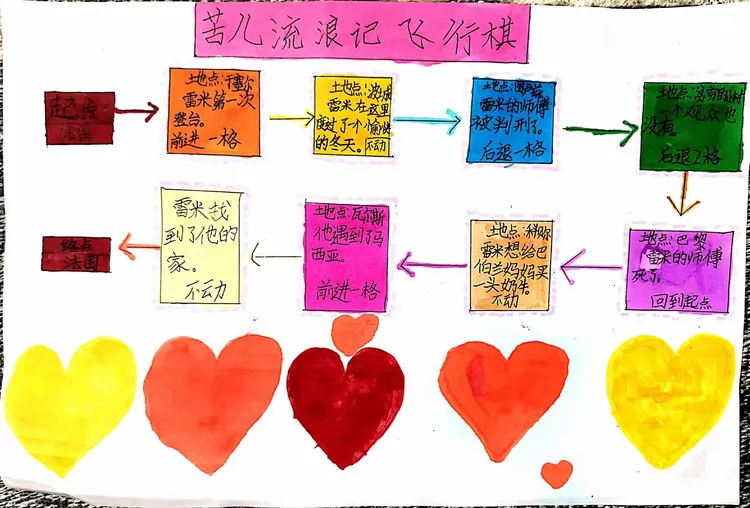 苦儿流浪记飞行棋
起点
法国
地点:于塞尔
雷米第一次
登台。
前进一格
地点:波
雷米在这里
度过了个愉快
的冬天。不动
地点:
雷米的师傅
被判刑了。
后退一格
地点:
一个观众也
没有。
后退2格
地点:巴黎
雷米的师傅
死了。
回到起点
地点:
雷米想给巴
伯兰妈妈买
一头奶牛。
不动
地点:瓦尔斯
他遇到了马
西亚。
前进一格
雷米找
到了他的
家。
不动
终点
法国